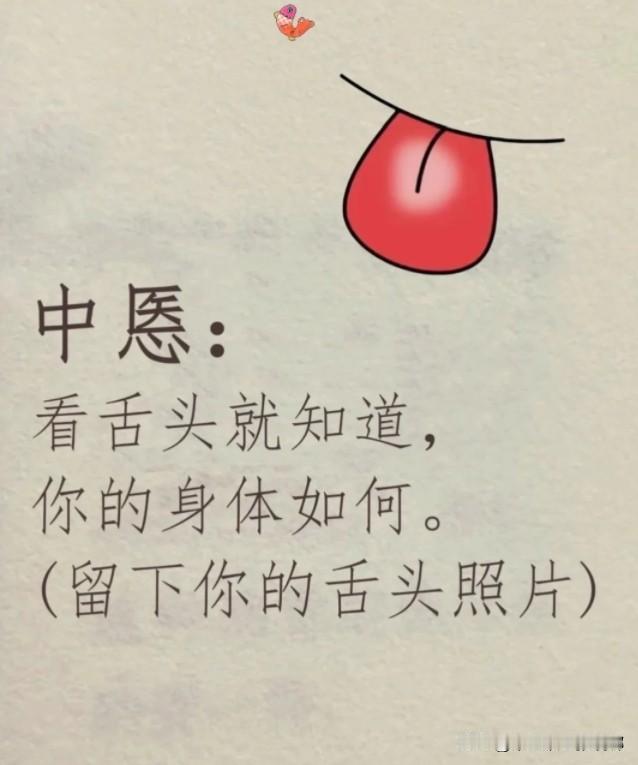 中悘：
看舌头就知道，
你的身体如何。
(留下你的舌头照片)